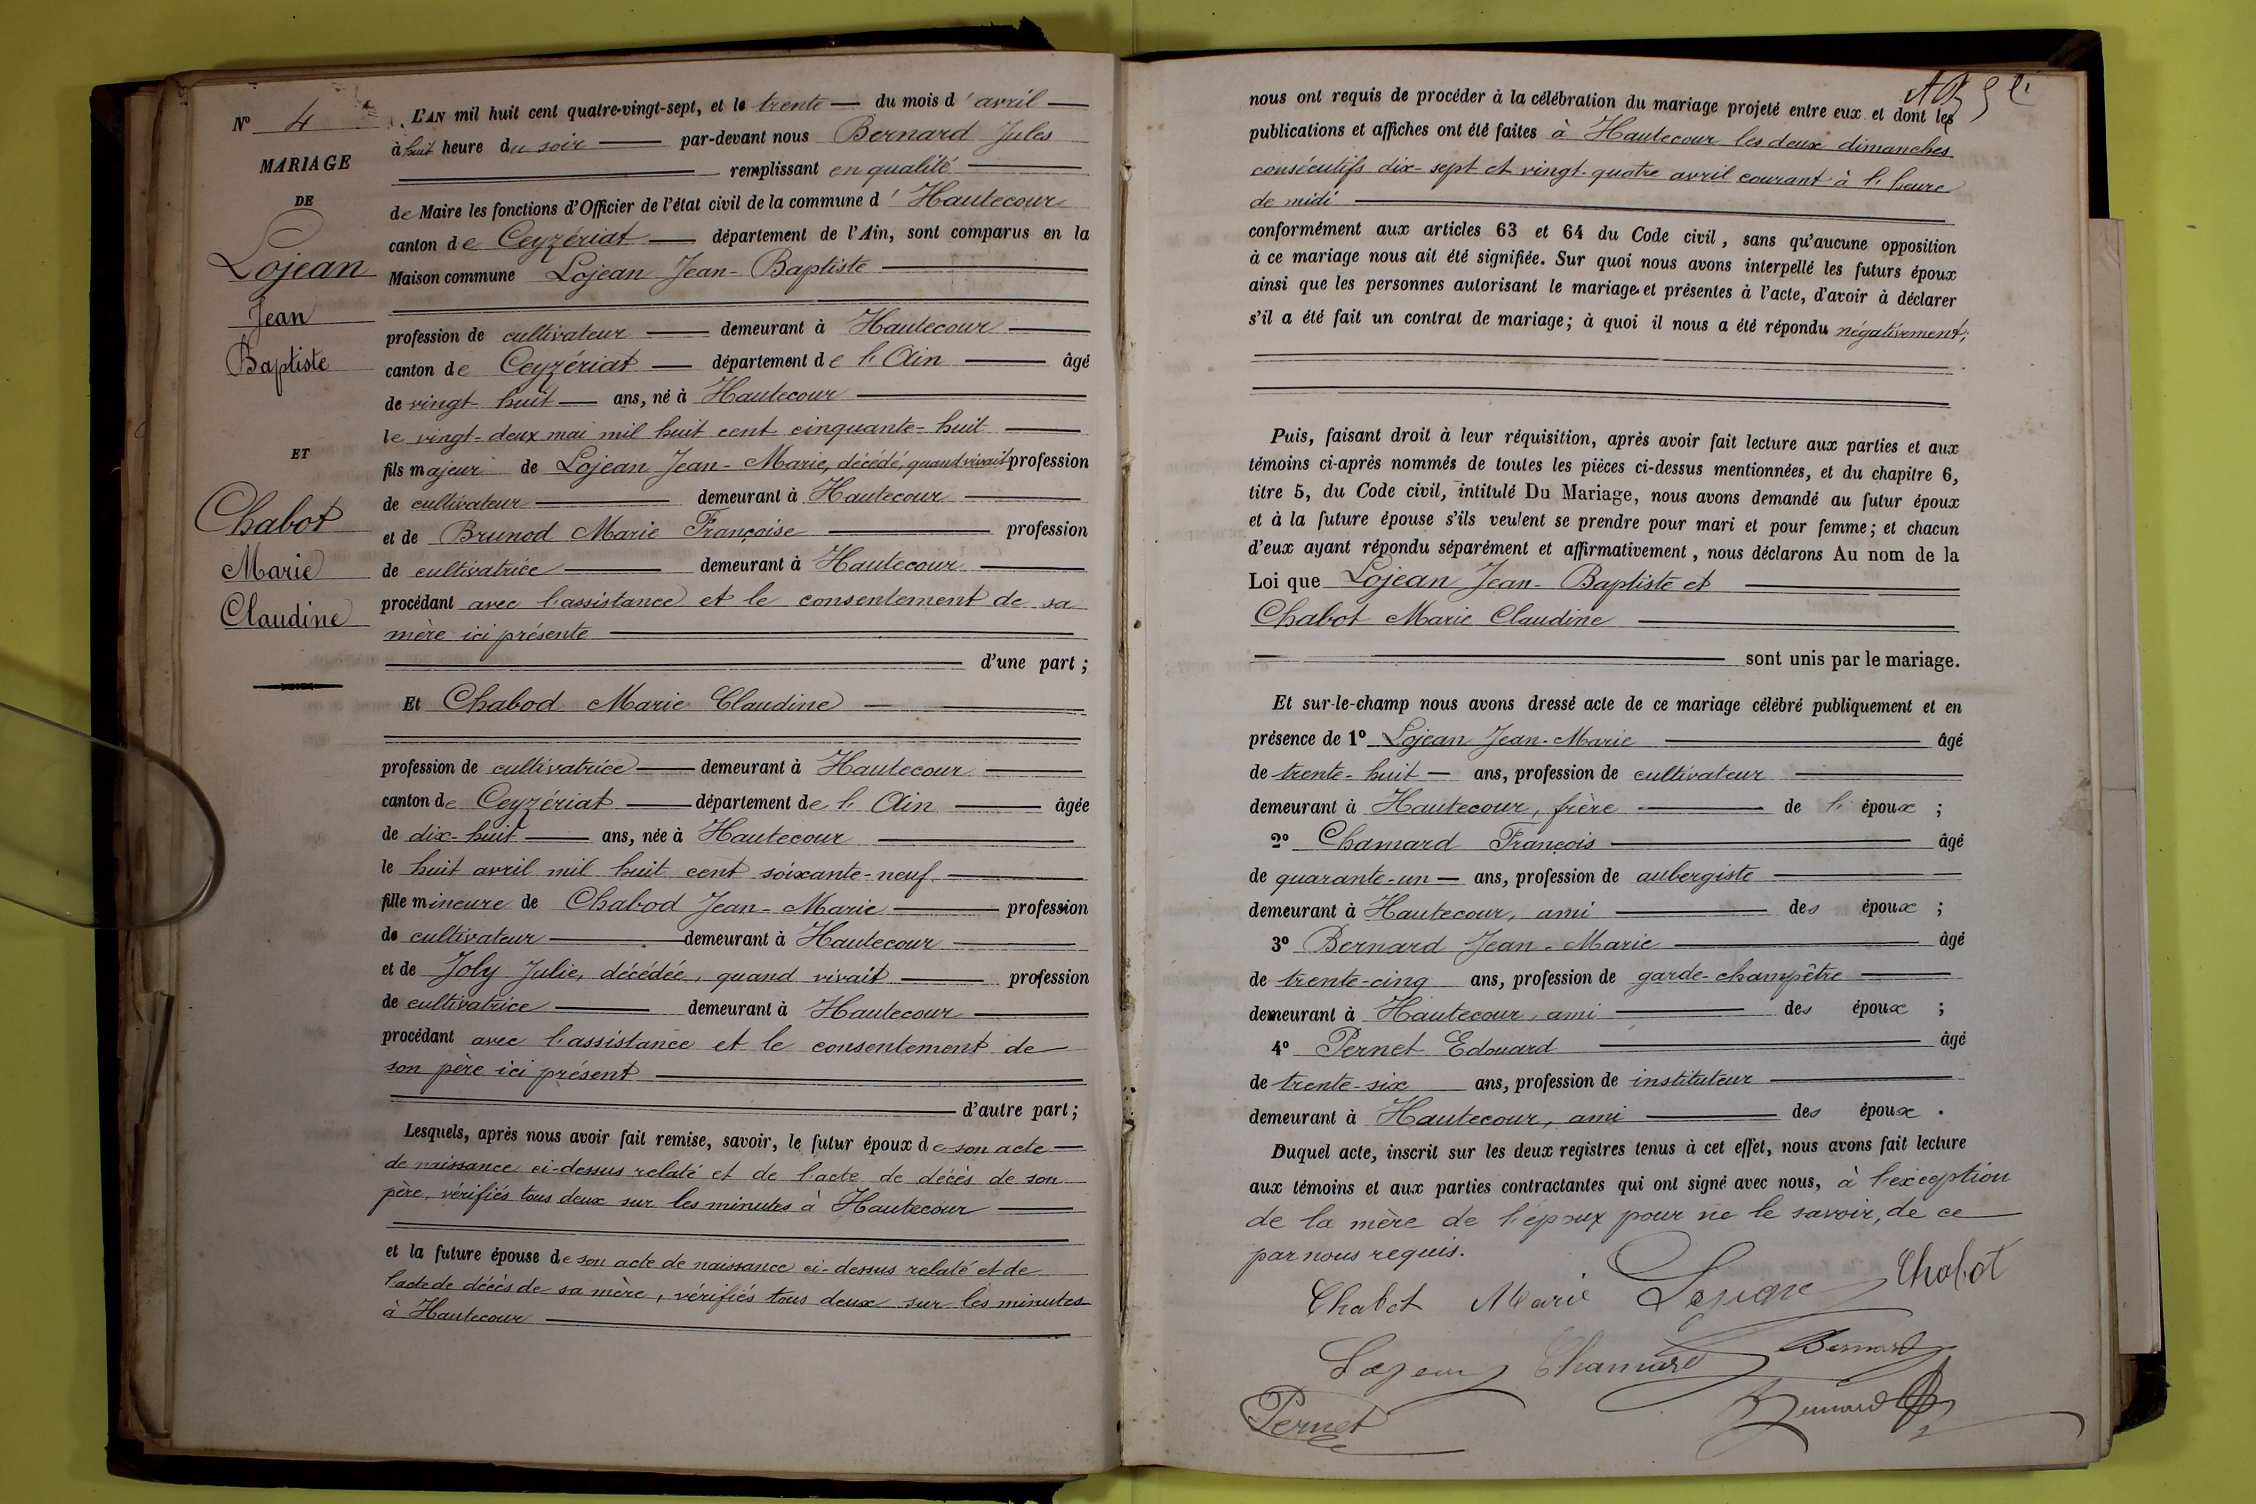 N° 4
MARIAGE
DE
Lojean
Jean
Baptiste
ET
Chabot
Marie
Claudine
L'AN mil huit cent quatre-vingt-sept, et le trente du mois d'avril
à huit heure du soir par-devant nous Bernard Jules
remplissant en qualité
de Maire les fonctions d'Officier de l'état civil de la commune d'Hautecour
canton de Ceyzériat département de l'Ain, sont comparus en la
Maison commune Lojean Jean-Baptiste
profession de cultivateur demeurant à Hautecour
canton de Ceyzériat département de l'Ain âgé
de vingt huit ans, né à Hautecour
le vingt-deux mai mil huit cent cinquante-huit
fils majeur de Lojean Jean-Marie, décédé, quand vivait profession
de cultivateur demeurant à Hautecour
et de Brunod Marie Françoise profession
de cultivatrice demeurant à Hautecour
procédant avec l'assistance et le consentement de sa
mère ici présente
d'une part ;
Et Chabod Marie Claudine
profession de cultivatrice demeurant à Hautecour
canton de Ceyzériat département de l'Ain âgée
de dix-huit ans, née à Hautecour
le huit avril mil huit cent soixante-neuf
fille mineure de Chabod Jean-Marie profession
de cultivateur demeurant à Hautecour
et de Joly Julie, décédée, quand vivait profession
de cultivatrice demeurant à Hautecour
procédant avec l'assistance et le consentement de
son père ici présent
d'autre part ;
Lesquels, après nous avoir fait remise, savoir, le futur époux de son acte
de naissance ci-dessus relaté et de l'acte de décès de son
père, vérifiés tous deux sur les minutes à Hautecour
et la future épouse de son acte de naissance ci-dessus relaté et de
l'acte de décès de sa mère, vérifiés tous deux sur les minutes
à Hautecour
nous ont requis de procéder à la célébration du mariage projeté entre eux et dont les
publications et affiches ont été faites à Hautecour les deux dimanches
consécutifs dix-sept et vingt-quatre avril courant à l'heure
de midi
conformément aux articles 63 et 64 du Code civil, sans qu'aucune opposition
à ce mariage nous ait été signifiée. Sur quoi nous avons interpellé les futurs époux
ainsi que les personnes autorisant le mariage et présentes à l'acte, d'avoir à déclarer
s'il a été fait un contrat de mariage; à quoi il nous a été répondu négativement;
Puis, faisant droit à leur réquisition, après avoir fait lecture aux parties et aux
témoins ci-après nommés de toutes les pièces ci-dessus mentionnées, et du chapitre 6,
titre 5, du Code civil, intitulé Du Mariage, nous avons demandé au futur époux
et à la future épouse s'ils veulent se prendre pour mari et pour femme; et chacun
d'eux ayant répondu séparément et affirmativement, nous déclarons Au nom de la
Loi que Lojean Jean-Baptiste et
Chabot Marie Claudine
sont unis par le mariage.
Et sur-le-champ nous avons dressé acte de ce mariage célébré publiquement et en
présence de 1° Lojean Jean-Marie âgé
de trente-huit ans, profession de cultivateur
demeurant à Hautecour, frère de l'époux ;
2° Chamard François âgé
de quarante-un ans, profession de aubergiste
demeurant à Hautecour, ami des époux ;
3° Bernard Jean-Marie âgé
de trente-cinq ans, profession de garde-champêtre
demeurant à Hautecour, ami des époux ;
4° Pernet Edouard âgé
de trente-six ans, profession de instituteur
demeurant à Hautecour, ami des époux .
Duquel acte, inscrit sur les deux registres tenus à cet effet, nous avons fait lecture
aux témoins et aux parties contractantes qui ont signé avec nous, à l'exception
de la mère de l'époux pour ne le savoir, de ce
par nous requis.
Chabot Marie Lojean Chabot
Lojean Chamard Bernard
Pernet Bernard